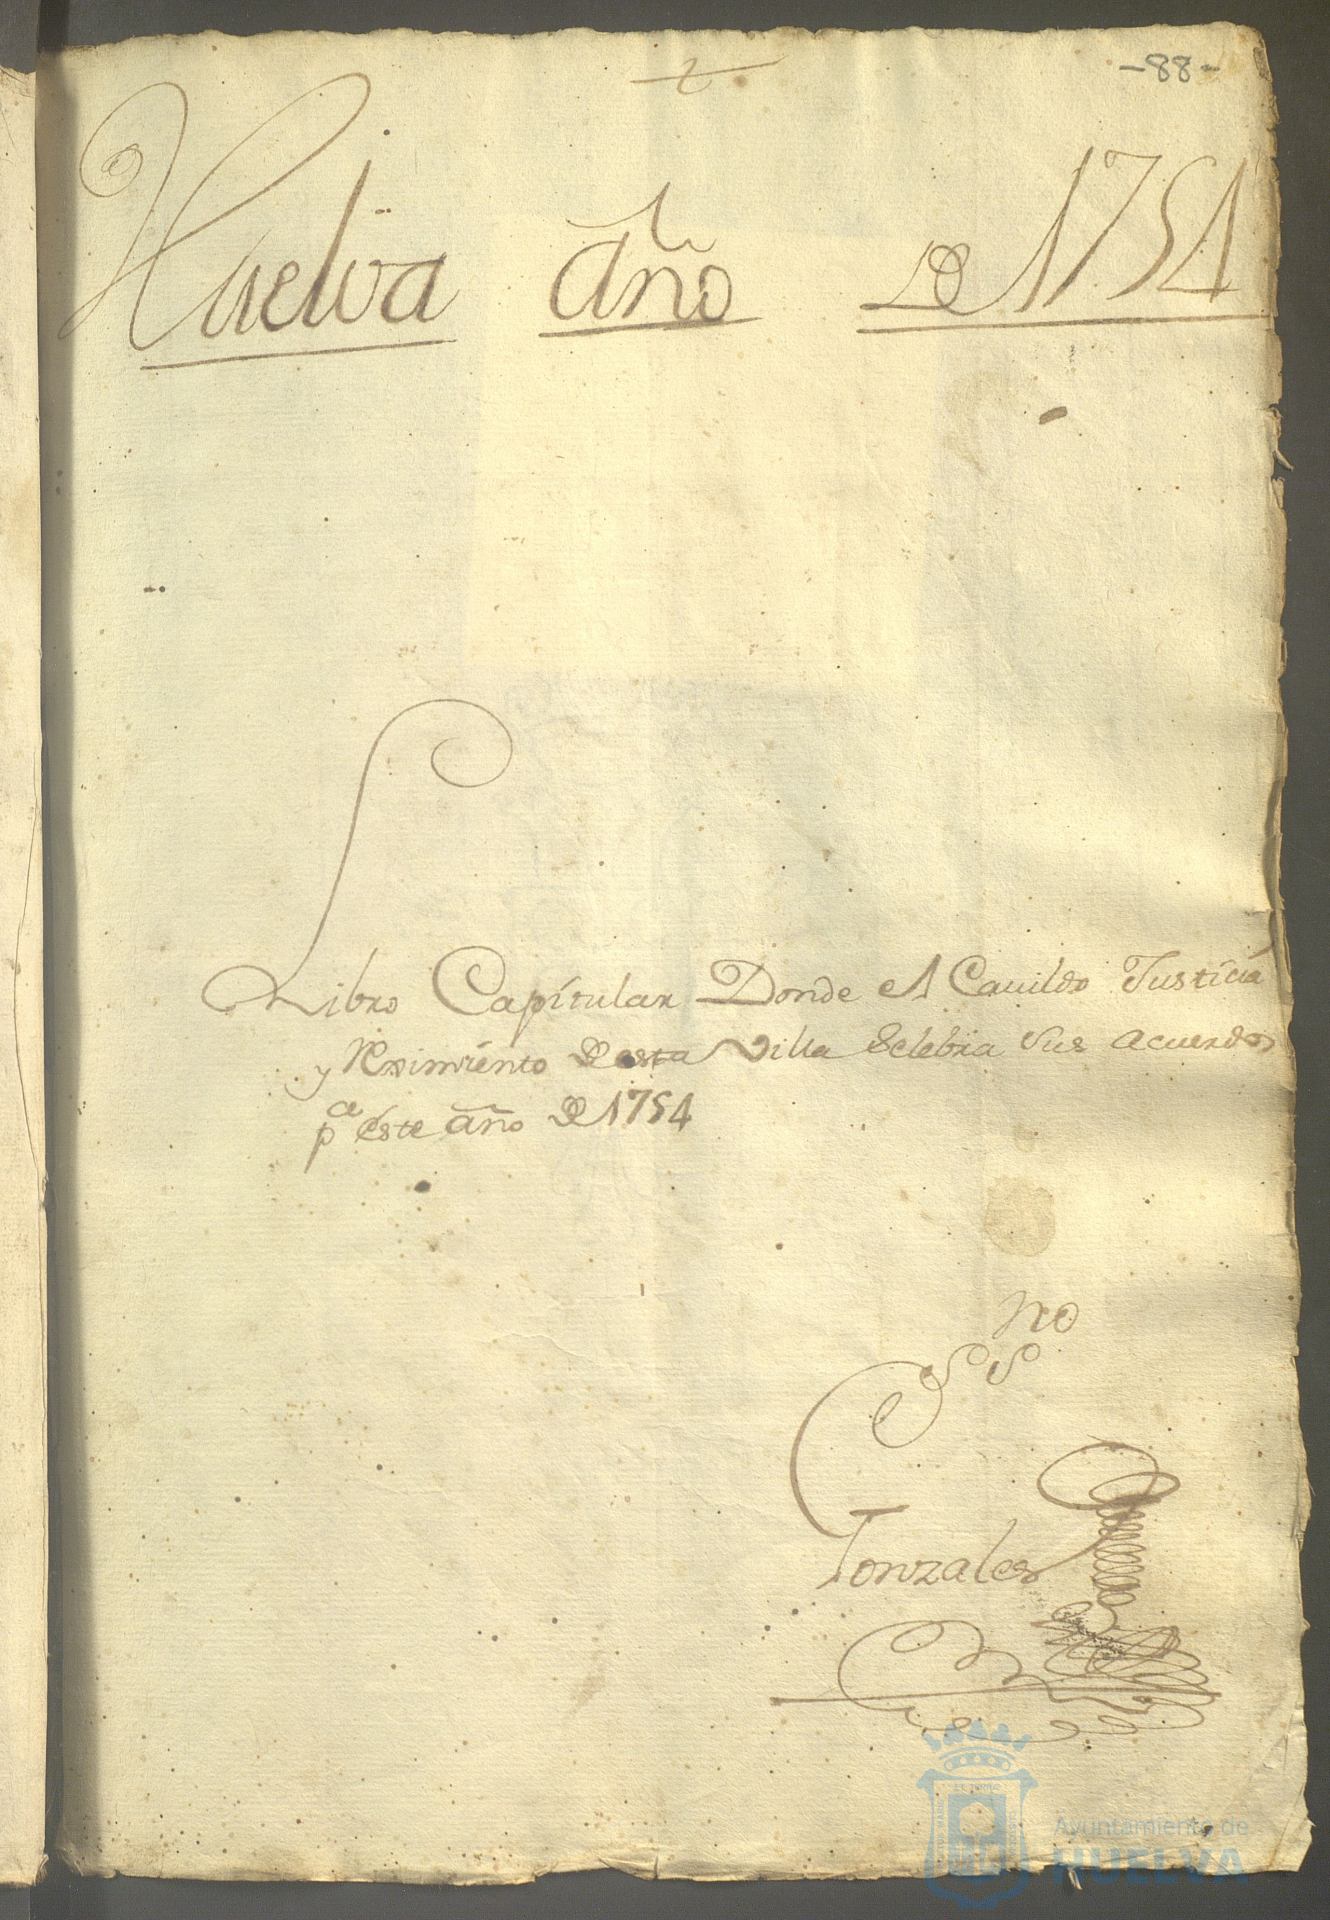 -88-
Huelva año de 1754
Libro Capitular Donde el Cavildo Justicia
y Reximiento de esta Villa Selebra Sus Acuerdos
pa este año de 1754
no
SS
Gonzales
Ayuntamiento de
HUELVA